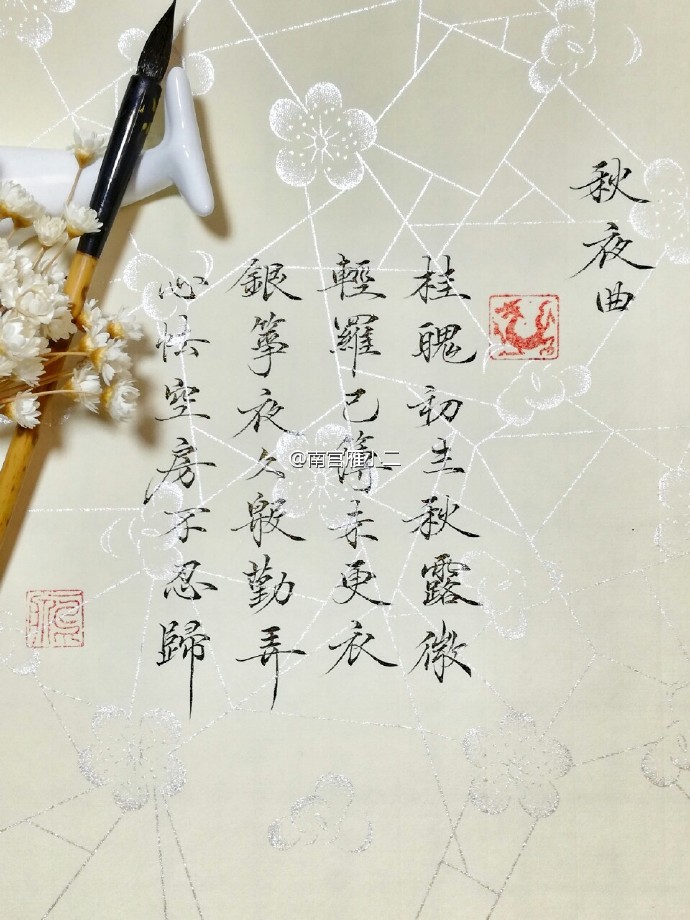 秋夜曲
桂魄初生秋露微
輕羅已薄未更衣
銀箏夜久殷勤弄
心怯空房不忍歸
@南宫雁小二